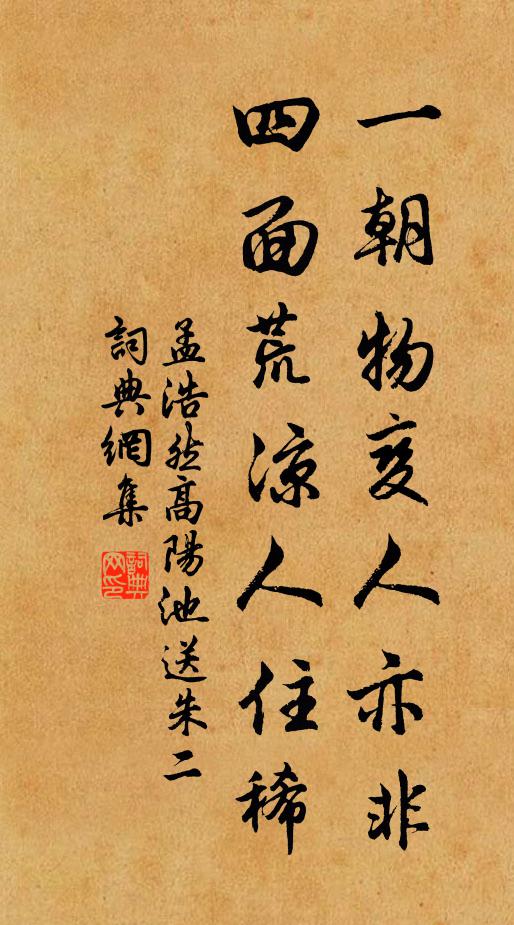 一朝物变人亦非
四面荒凉人住稀
孟浩然高陽池送朱二
詞典網集
詞典網印